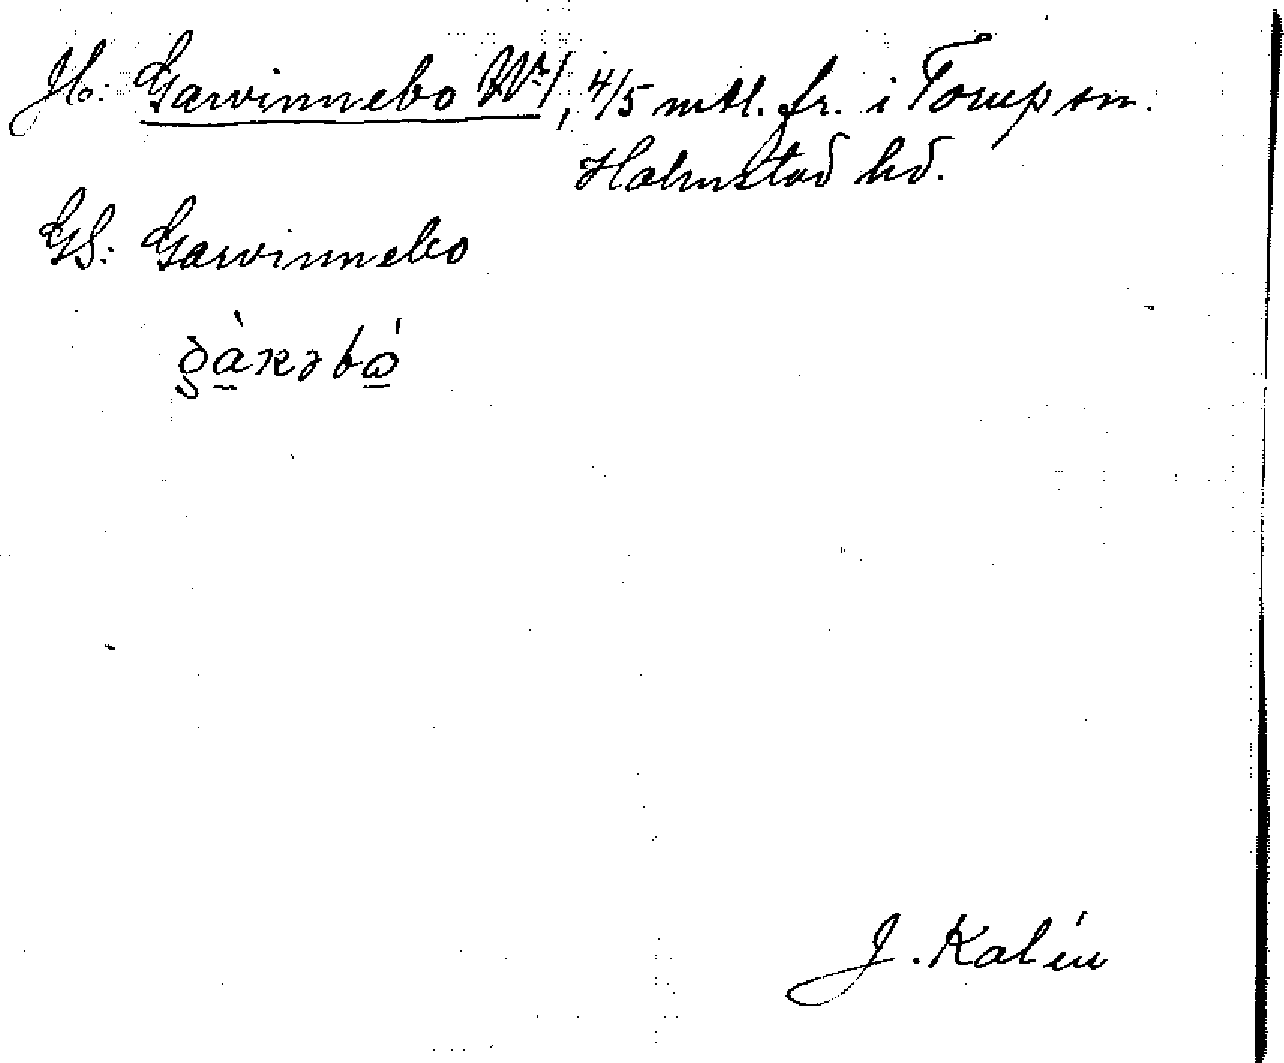 Jb: Garvinnebo Nr 1, 4/5 mtl. fr. i Torup sn.
Halmstad hd.
GS: Garvinnebo
J. Kalén